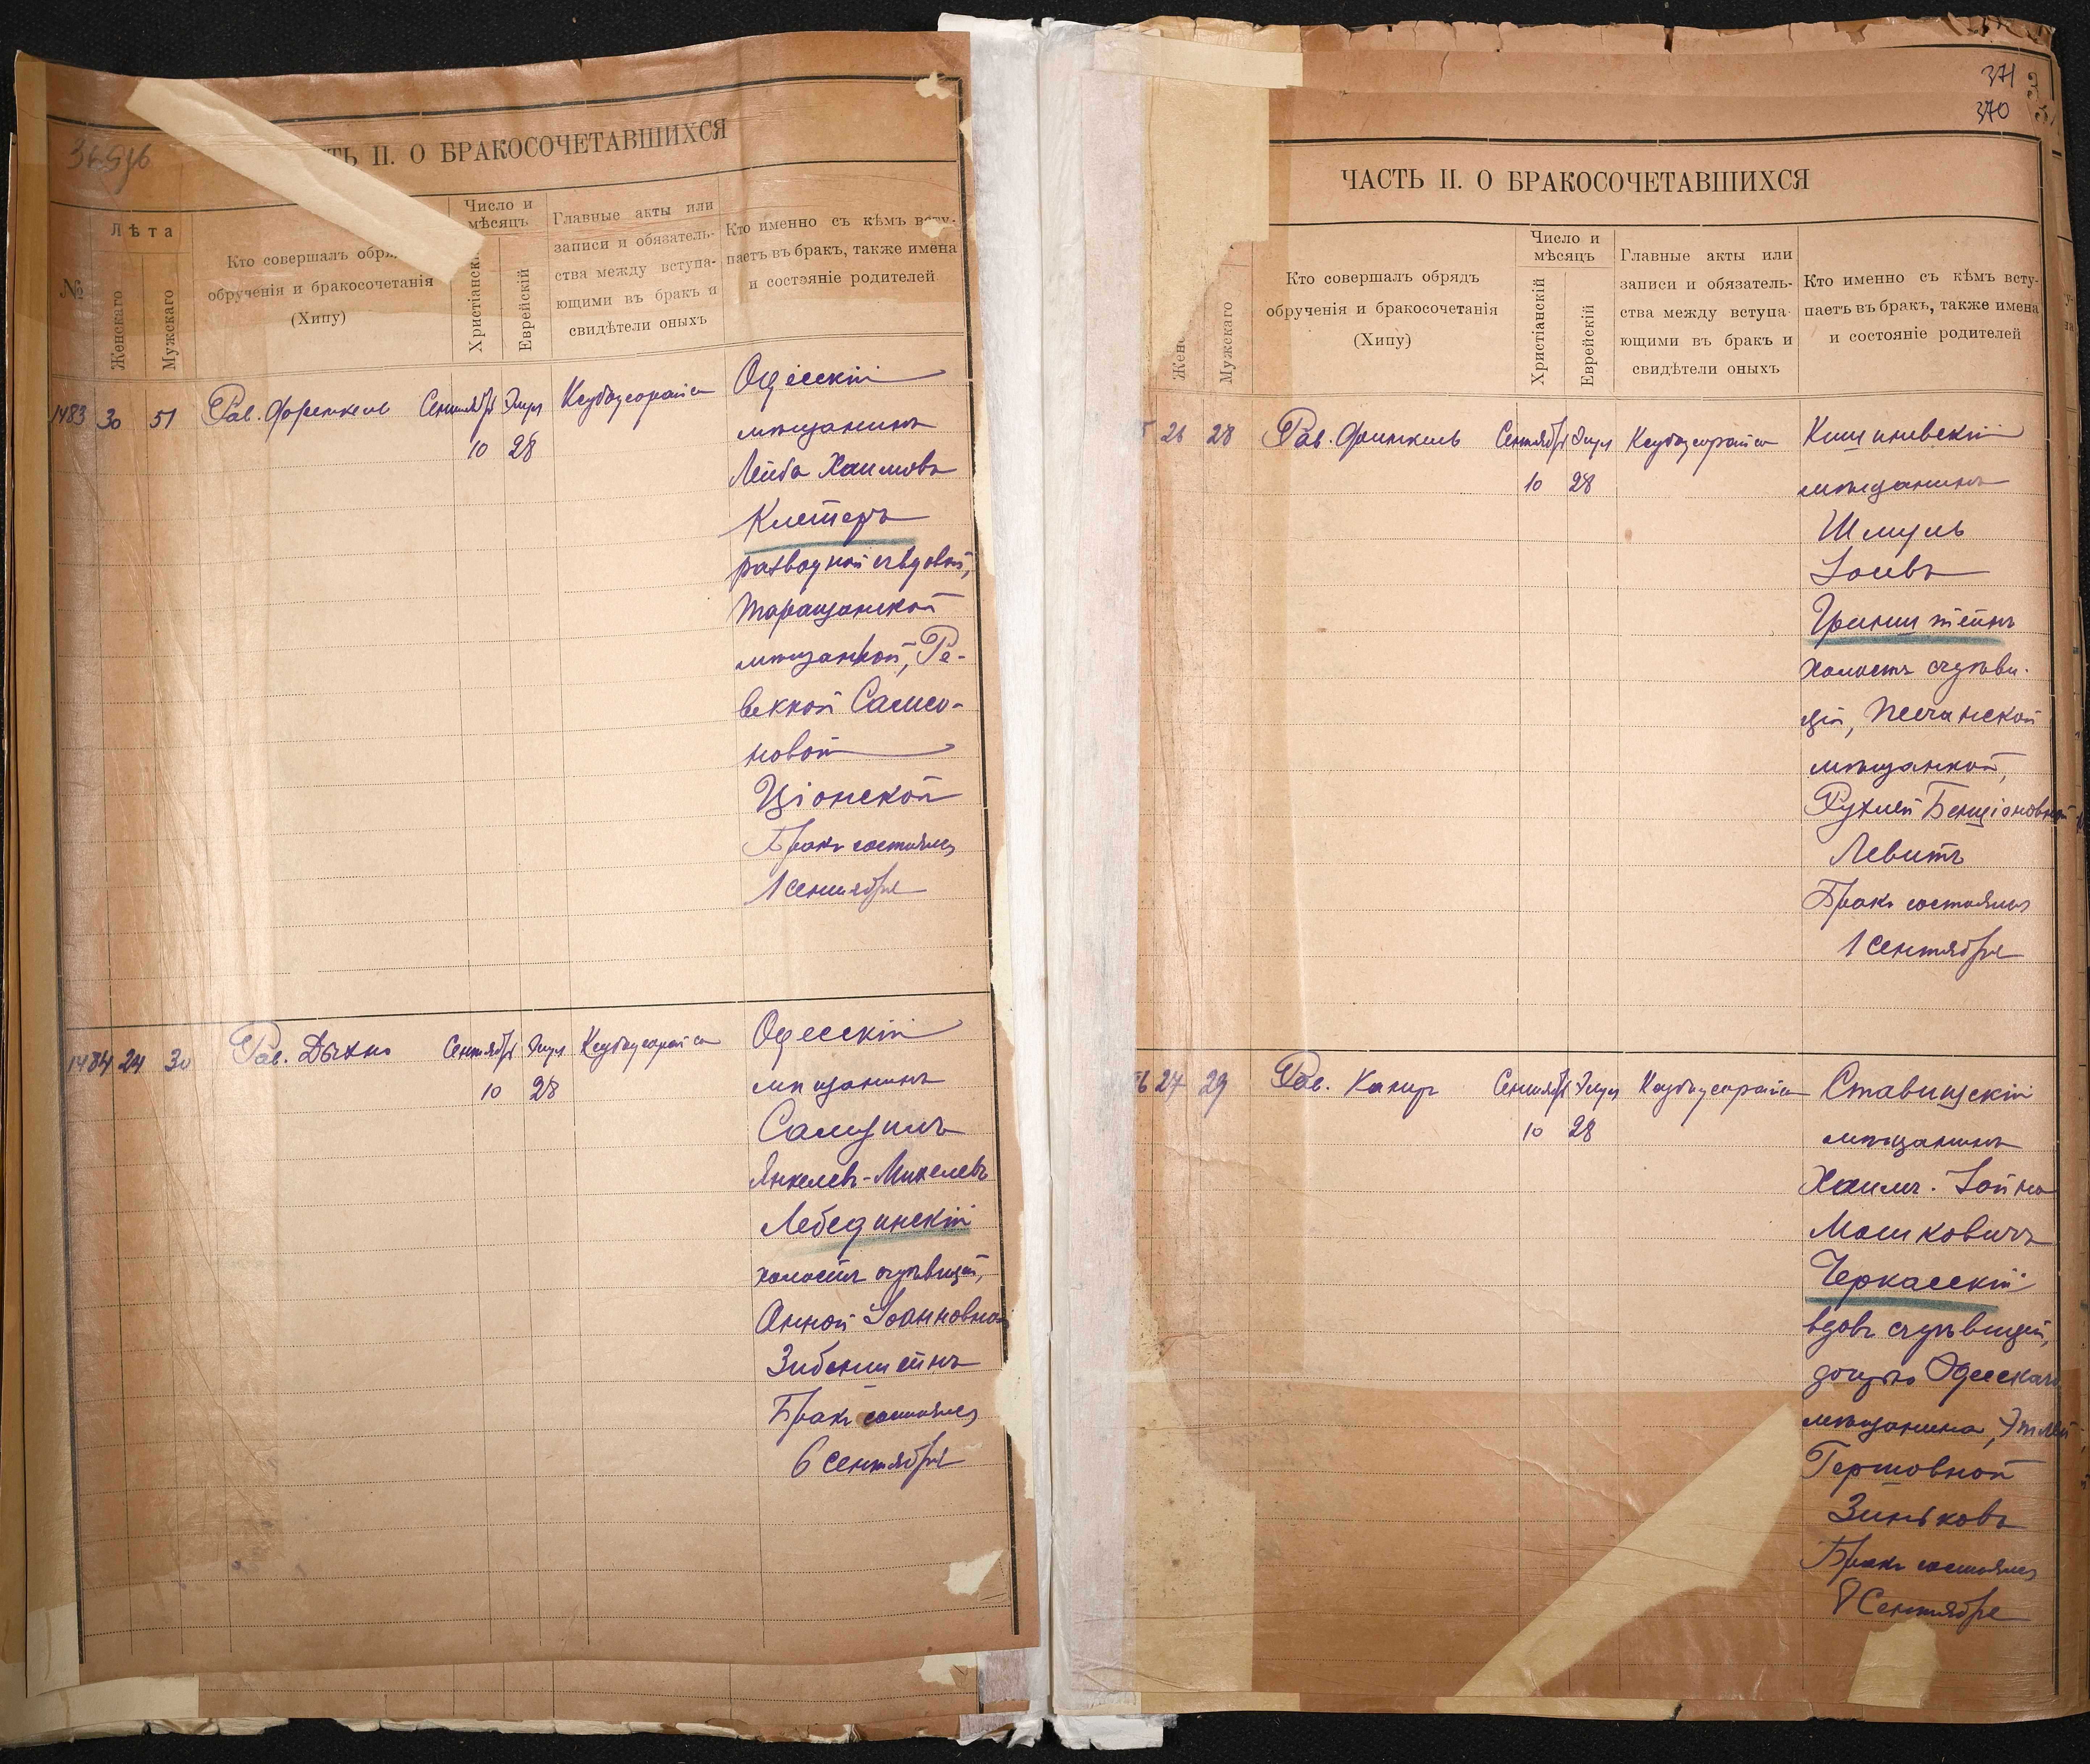 ТЬ II. О БРАКОСОЧЕТАВШИХСЯ
№
Лѣта
Женскаго
Мужскаго
Кто совершалъ обр
обрученія и бракосочетанія
(Хипу)
Число и
мѣсяцъ
Христіанск
Еврейскій
Главные акты или
записи и обязатель-
ства между вступа-
ющими въ бракъ и
свидѣтели оныхъ
Кто именно съ кѣмъ всту-
паетъ въ бракъ, также имена
и состояніе родителей
1483 30 51 Рав. Френкель Сентябрь Элул Ксубаусорайса Одесскій
10 28 мѣщанинъ
Лейба Хаимовъ
Клетеръ
разводной съ вдовой,
Таращанской
мѣщанкой, Ре-
веккой Самсо-
новой
Ціонской
Бракъ состоялся
1 сентября
1484 24 30 Рав. Дыхно Сентябрь Элул Ксубаусорайса Одесскій
10 28 мѣщанинъ
Самуилъ
Янкелевъ-Михелевъ
Лебединскій
холостъ съ дѣвицей,
Анной Іоанновной
Зибенштейнъ
Бракъ состоялся
6 сентября
371
370
ЧАСТЬ II. О БРАКОСОЧЕТАВШИХСЯ
Жен
Мужскаго
Кто совершалъ обрядъ
обрученія и бракосочетанія
(Хипу)
Число и
мѣсяцъ
Христіанскій
Еврейскій
Главные акты или
записи и обязатель-
ства между вступа-
ющими въ бракъ и
свидѣтели оныхъ
Кто именно съ кѣмъ всту-
паетъ въ бракъ, также имена
и состояніе родителей
26 28 Рав. Финкель Сентябрь Элул Ксубаусорайса Кишиневскій
10 28 мѣщанинъ
Шмуль
Іосевъ
Гринштейнъ
холостъ съ дѣви-
цей, Песчанской
мѣщанкой,
Рухлей Бенціоновной
Левитъ
Бракъ состоялся
1 сентября
6 27 29 Рав. Кануръ Сентябрь Элул Ксубаусорайса Ставищскій
10 28 мѣщанинъ
Хаимъ-Іойна
Мошковичъ
Черкасскій
вдовъ съ дѣвицей,
дочерью Одесскаго
мѣщанина, Этлей
Гершовной
Зиньковъ
Бракъ состоялся
8 Сентября